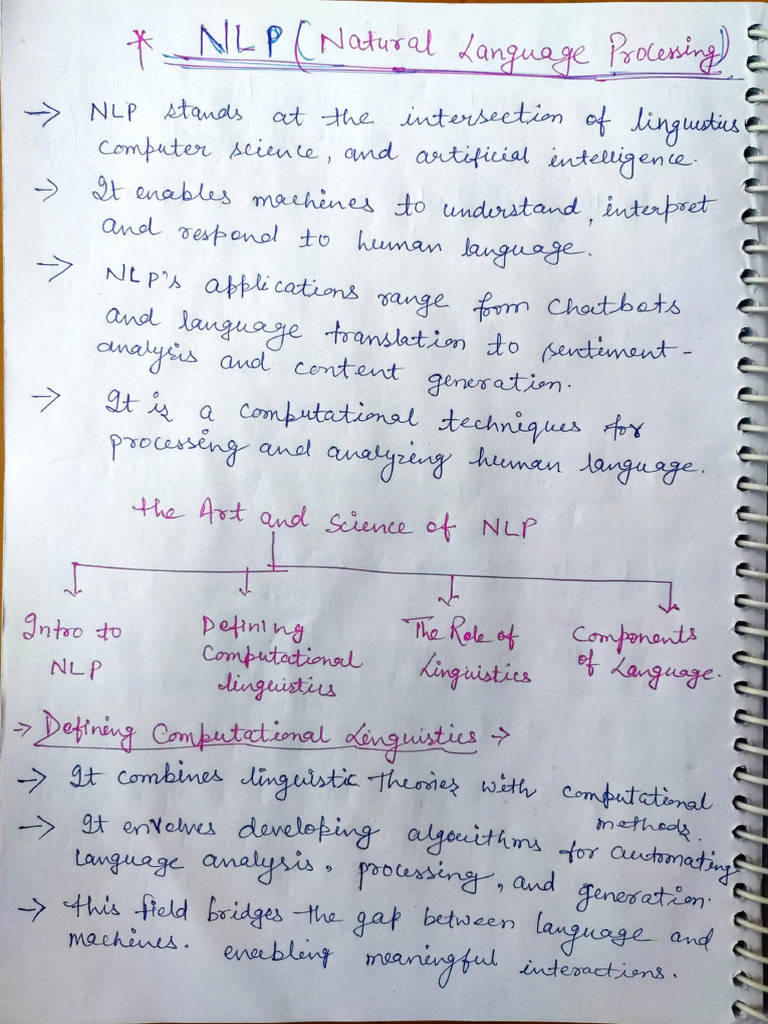 * NLP (Natural Language Processing)
→ NLP stands at the intersection of linguistics
computer science, and artificial intelligence.
→ It enables machines to understand, interpret
and respond to human language.
→ NLP's applications range from chatbots
and language translation to sentiment-
analysis and content generation.
→ It is a computational techniques for
processing and analyzing human language.
the Art and Science of NLP
Intro to NLP
Defining Computational linguistics
The Role of Linguistics
Components of Language.
→ Defining Computational Linguistics →
→ It combines linguistic theories with computational
methods.
→ It envolves developing algorithms for automating
language analysis, processing, and generation.
→ this field bridges the gap between language and
machines. enabling meaningful interactions.